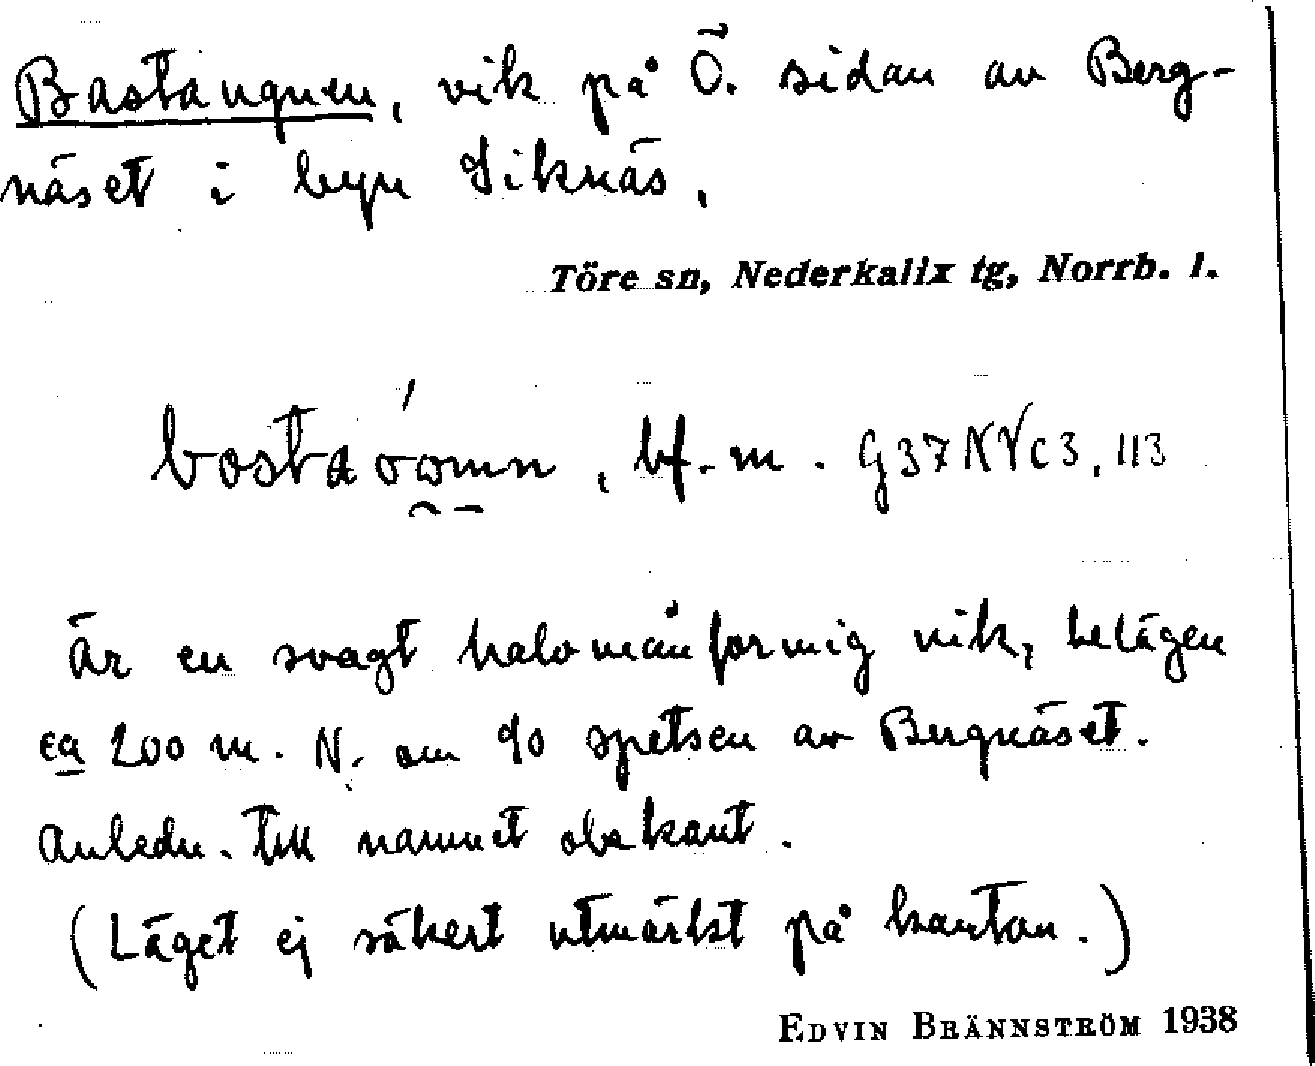 Bastaugnen, vik på Ö. sidan av Berg-
näset i byn Siknäs.
Töre sn, Nederkalix tg, Norrb. l.
bf. m. G37NVc3, 113
Är en svagt halvmånformig vik, belägen
ca 200 m. N. om SO spetsen av Bergnäset.
Anledn. till namnet obekant.
(Läget ej säkert utmärkt på kartan.)
EDVIN BRÄNNSTRÖM 1938